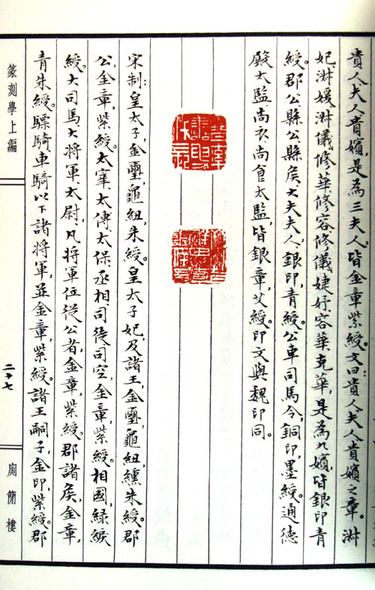 貴人夫人貴嬪,是為三夫人。皆金章紫綬。文曰:貴人夫人貴嬪之章。淑
妃淑媛淑儀修華修容修儀婕妤容華充華,是為九嬪,皆銀印青
綬。郡公縣公縣侯大夫夫人,銀印,青綬。公車司馬令,銅印,墨綬。通德
殿大監尚衣尚食太監,皆銀章,艾綬。印文與魏印同。
宋制:皇太子,金璽,龜紐,朱綬。皇太子妃,及諸王,金璽,龜紐,纁朱綬。郡
公,金章,紫綬。太宰太傅太保丞相司徒司空,金章,紫綬。相國,綠綟
綬。大司馬大將軍太尉,凡將軍位從公者,金章,紫綬。郡諸侯,金章,
青朱綬。驃騎車騎以下諸將軍,並金章,紫綬。諸王嗣子,金印,紫綬。郡
篆刻學上編
二十七